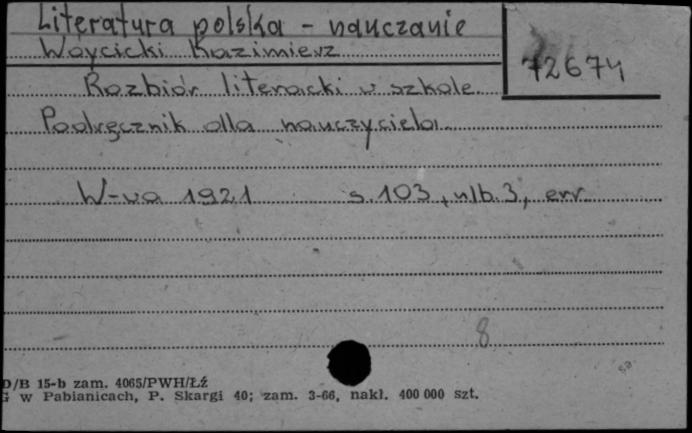 Literatura polska - nauczanie
Woycicki Kazimierz
72674
Rozbiór literacki w szkole.
Podręcznik dla nauczyciela.
W-wa 1921 s. 103, nlb. 3, err.
8
D/B 15-b zam. 4065/PWH/Łź
G w Pabianicach, P. Skargi 40; zam. 3-66, nakl. 400 000 szt.